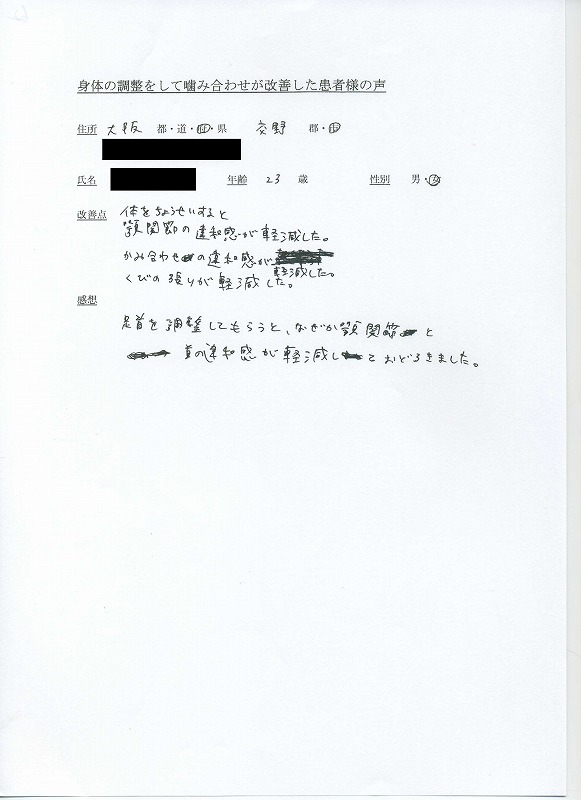 身体の調整をして噛み合わせが改善した患者様の声
住所 大阪 都・道・府・県 交野 郡・市
氏名 年齢 23 歳 性別 男・女
改善点 体をちょうせいすると
顎関節の違和感が軽減した。
かみ合わせの違和感が
軽減した。
くびの張りが軽減した。
感想
足首を調整してもらうと、なぜか顎関節と
首の違和感が軽減しておどろきました。